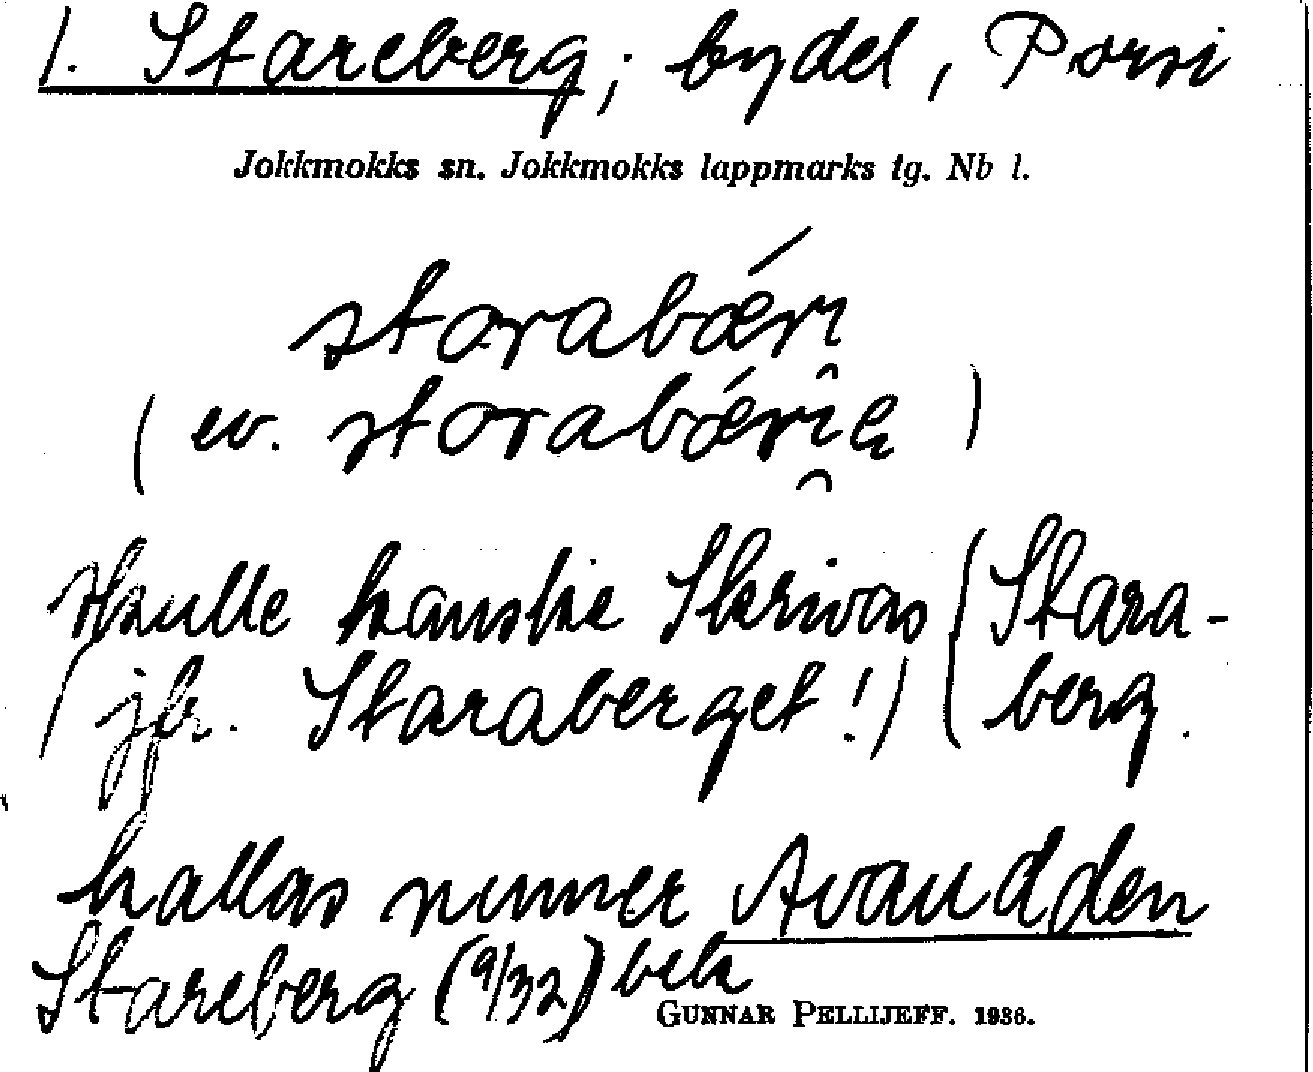 1. Stareberg; bydel, Porsi
Jokkmokks sn. Jokkmokks lappmarks tg. Nb l.
storabǽri
(ev. storabǽri̯e)
Skulle kanske Skrivas (Stara-
(jfr. Staraberget!) (berg.
kallas numer Avaudden
Stareberg (9/32) bek
GUNNAR PELLIJEFF. 1936.